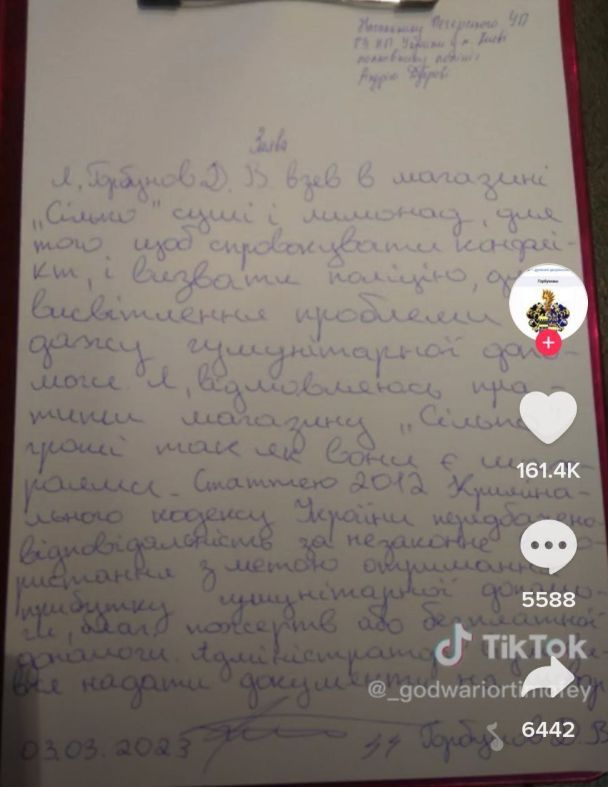 Начальнику Печерського УП
ГУ НП України у м. Києві
полковнику поліції
Андрію
Заява
Я, Горбунов Д. В. взев в магазині
„Сільпо" суші і лимонад, для
того щоб спровокувати конфлі-
кт, і визвати поліцію, для
висвітлення проблеми
дажу гуманітарної допо-
моги. Я, відмовляюсь пла-
тити магазину „Сільпо"
гроші так як вони є
Статтею 2012 Криміна-
льного кодексу України передбачено
відповідальність за незаконне
ристання з метою отримання
прибутку гуманітарної допомо-
ги, благ. пожертв або безплатної
допомоги. Адміністратор
надати документи на товар
03.03.2023 Горбунов Д. В.
Горбунова
161.4K
5588
TikTok
@_godwariortimofey
6442